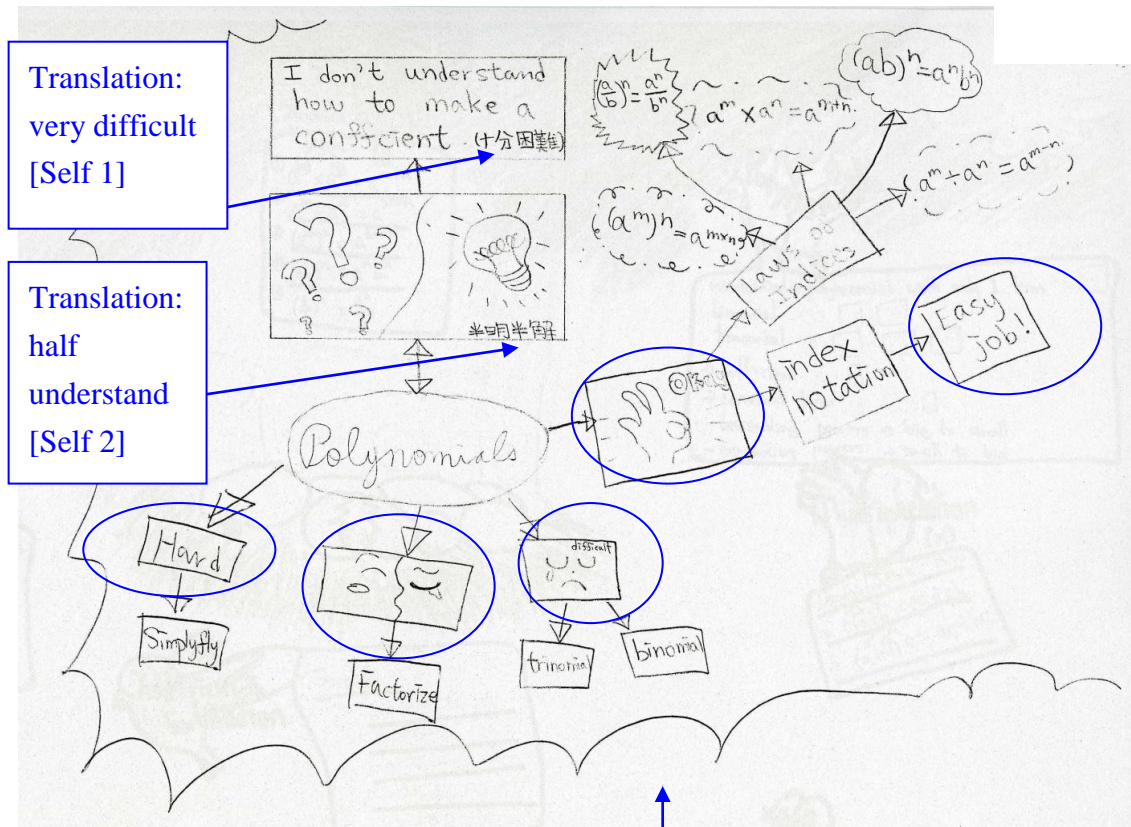 Translation:
very difficult
[Self 1]
Translation:
half
understand
[Self 2]
I don't understand
how to make a
confficient. (十分困難)
半明半解
(a/b)ⁿ = aⁿ/bⁿ
aᵐ × aⁿ = aᵐ⁺ⁿ
(ab)ⁿ = aⁿbⁿ
(aᵐ)ⁿ = aᵐˣⁿ
aᵐ ÷ aⁿ = aᵐ⁻ⁿ
Laws of
Indices
index
notation
Easy
job!
Polynomials
Hard
Simplyfly
Factorize
difficult
trinomial
binomial